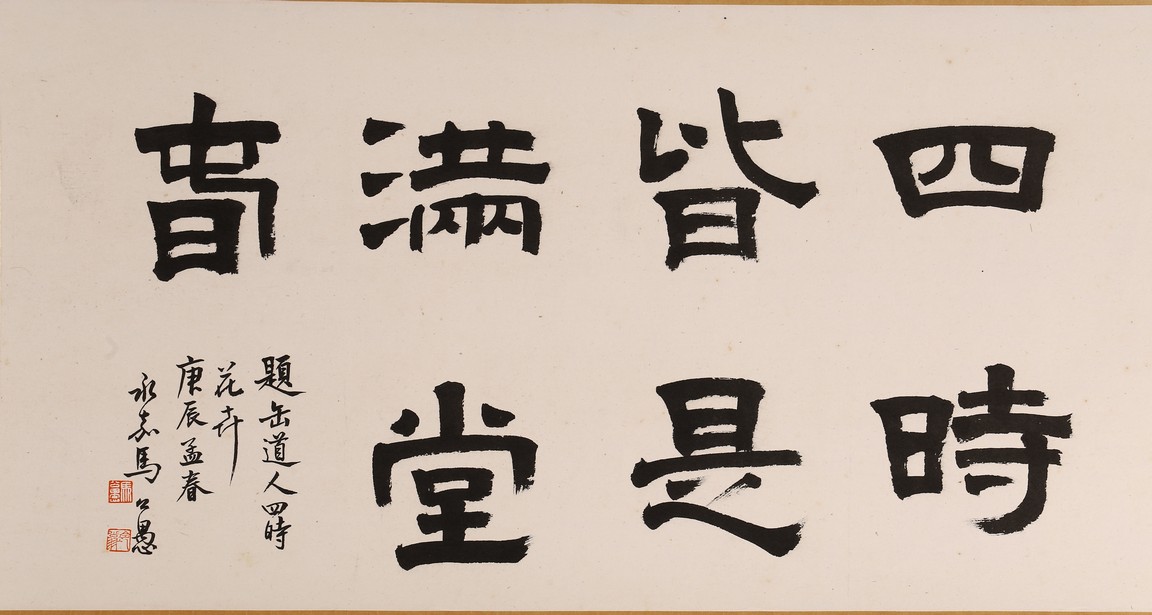 四時
皆是
滿堂
春
題缶道人四時
花卉
庚辰孟春
永嘉馬公愚